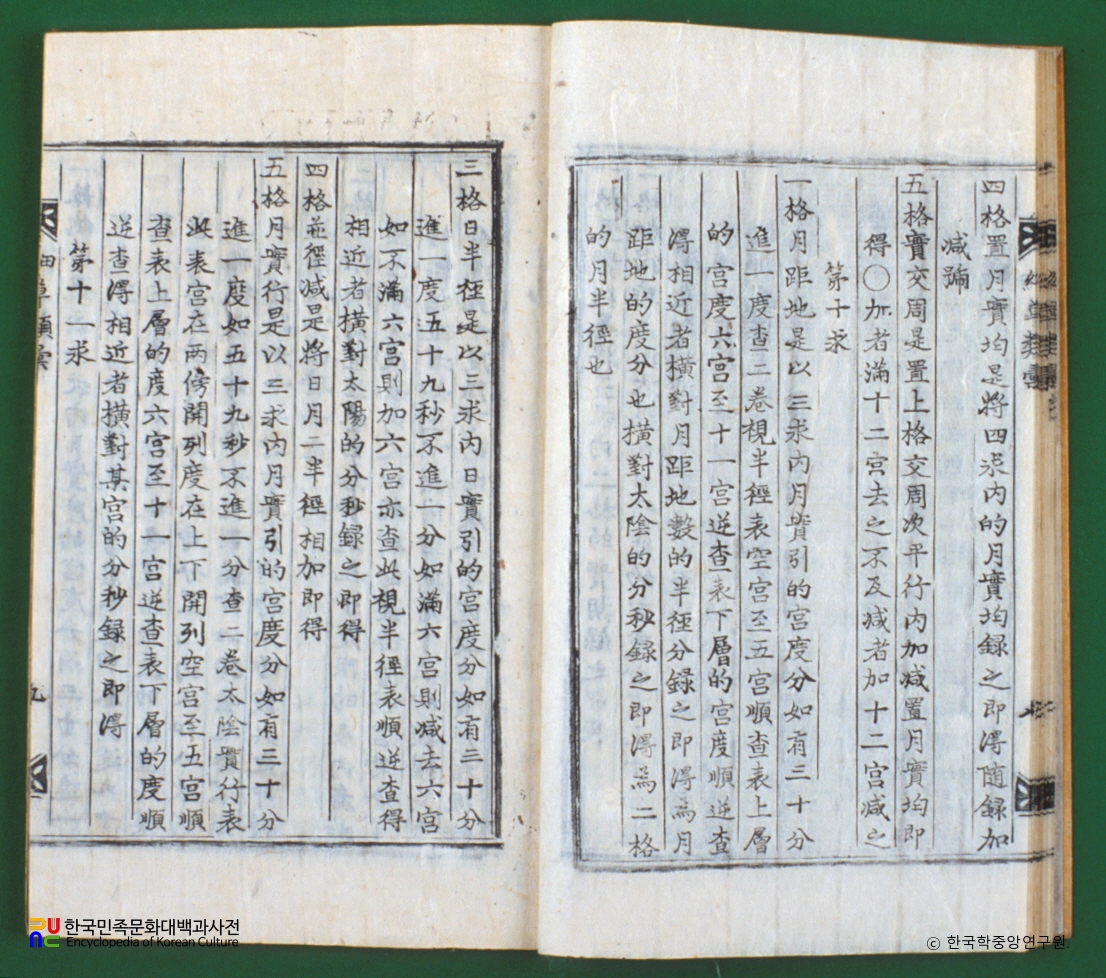 四格置月實均是將四求內的月實均録之即得隨録加
減號
五格實交周是置上格交周次平行內加減置月實均即
得〇加者滿十二宮去之不及減者加十二宮減之
第十求
一格月距地是以三求內月實引的宮度分如有三十分
進一度查二卷視半徑表空宮至五宮順查表上層
的宮度六宮至十一宮逆查表下層的宮度順逆查
得相近者橫對月距地數的半徑分録之即得為月
距地的度分也橫對太陰的分秒録之即得為二格
的月半徑也
三格日半徑是以三求內日實引的宮度分如有三十分
進一度五十九秒不進一分如滿六宮則減去六宮
如不滿六宮則加六宮亦查此視半徑表順逆查得
相近者橫對太陽的分秒録之即得
四格並徑減是將日月二半徑相加即得
五格月實行是以三求內月實引的宮度分如有三十分
進一度如五十九秒不進一分查二卷太陰實行表
此表宮在兩傍開列度在上下開列空宮至五宮順
查表上層的度六宮至十一宮逆查表下層的度順
逆查得相近者橫對其宮的分秒録之即得
第十一求
九
한국민족문화대백과사전
Encyclopedia of Korean Culture
ⓒ 한국학중앙연구원.